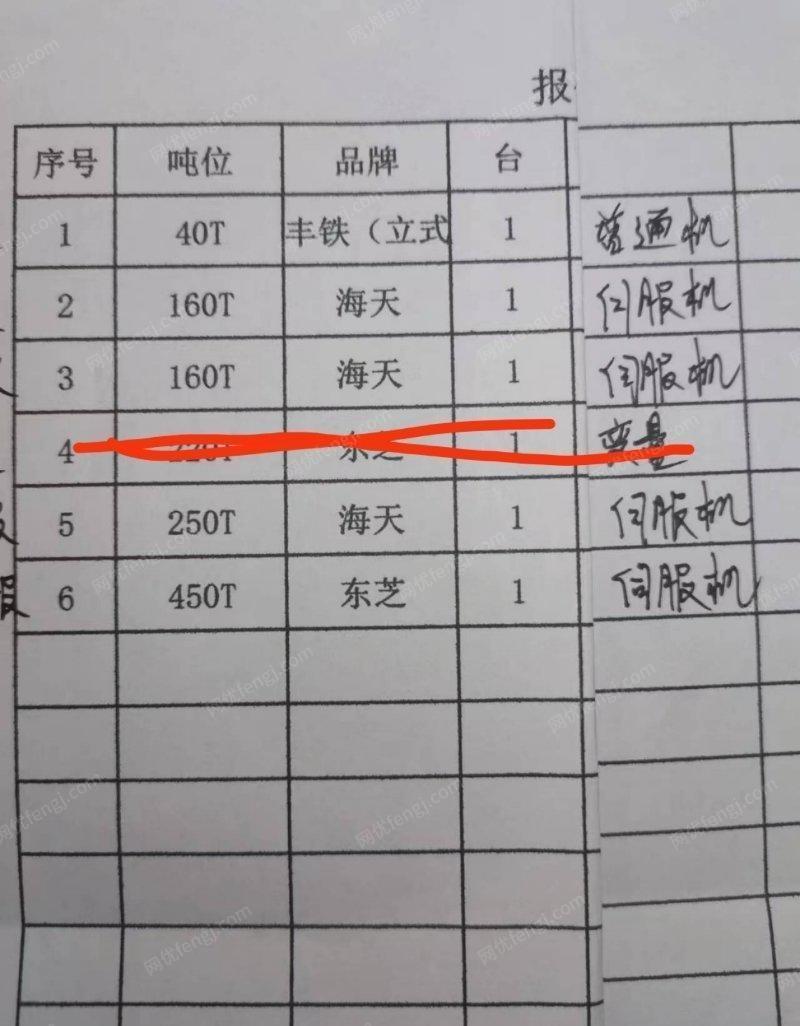 报
序号 吨位 品牌 台
1 40T 丰铁（立式 1 普通机
2 160T 海天 1 伺服机
3 160T 海天 1 伺服机
4 220T 东芝 1 变量
5 250T 海天 1 伺服机
6 450T 东芝 1 伺服机
网优fengj.com